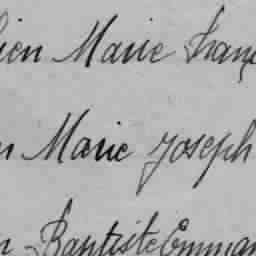 ien Marie Franç
n Marie Joseph
n Baptiste Emman